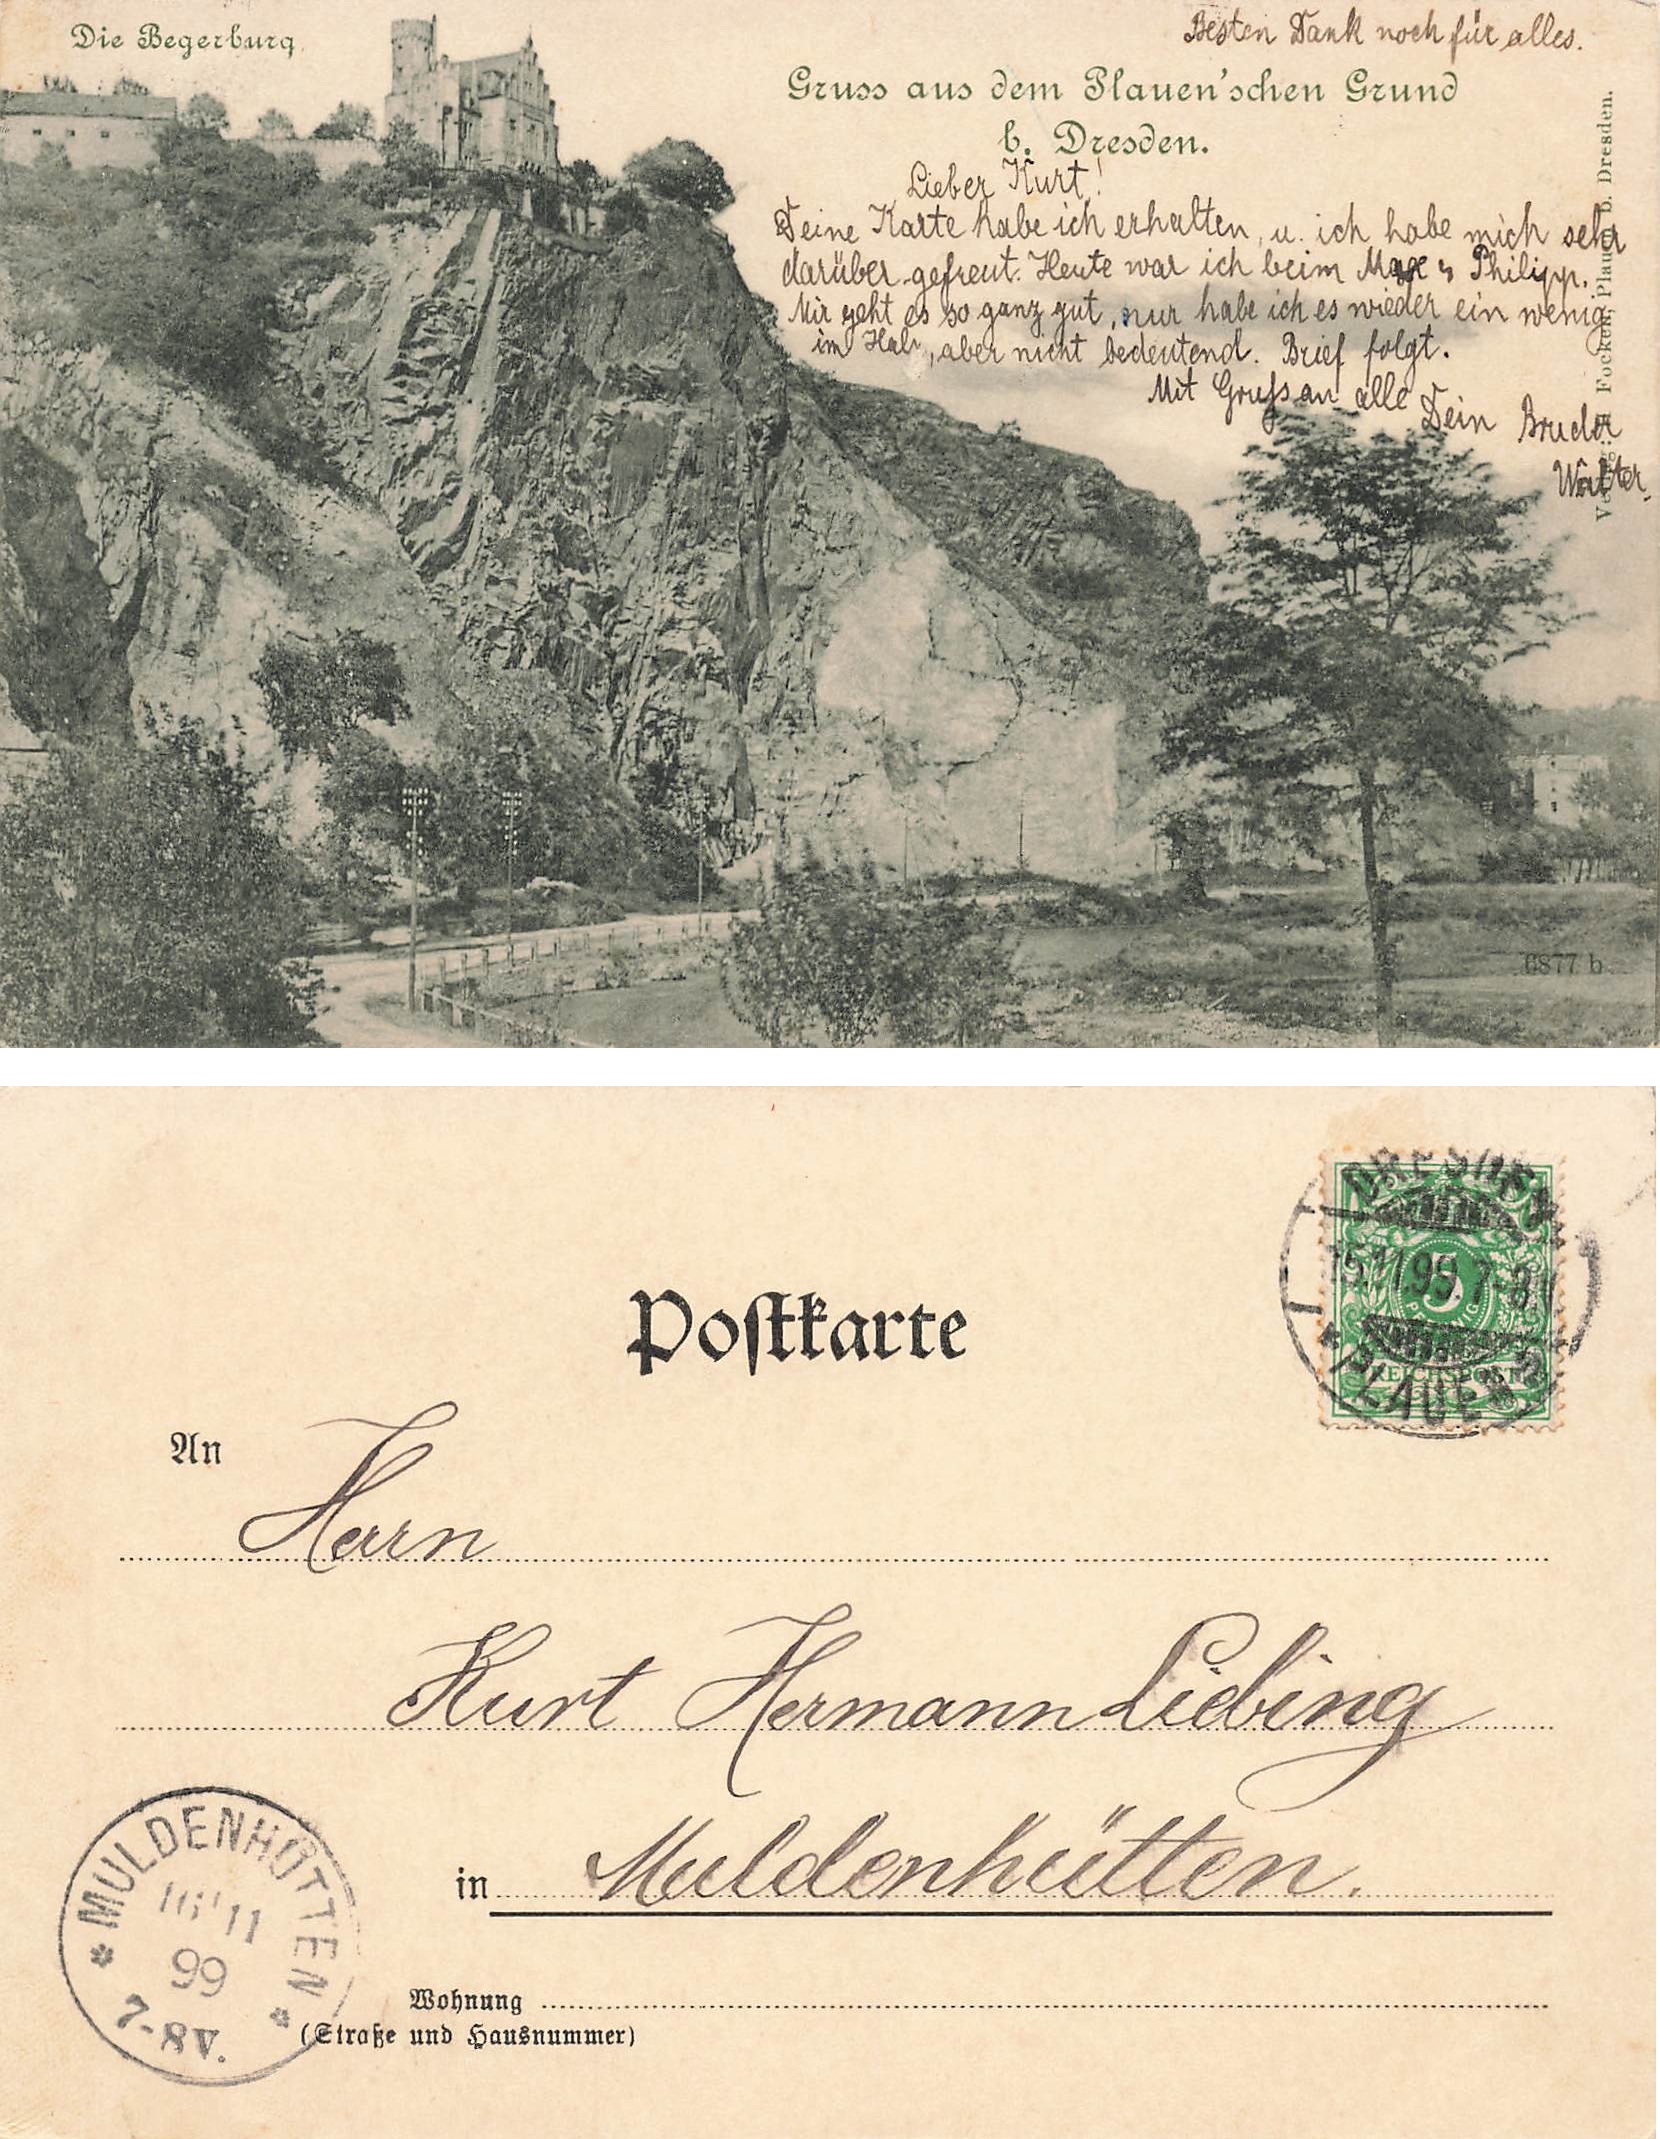 Die Begerburg
Besten Dank noch für alles.
Gruss aus dem Plauen'schen Grund
b. Dresden.
Lieber Kurt!
Deine Karte habe ich erhalten, u. ich habe mich sehr
darüber gefreut. Heute war ich beim Philipp.
Mir geht es so ganz gut, nur habe ich es wieder ein wenig
im Hals, aber nicht bedeutend. Brief folgt.
Mit Gruss an alle Dein Bruder
Walter.
Focken, Plauen b. Dresden.
6877 b
Postkarte
DRESDEN
15 11 99 7-8 V
PLAUEN
5
PFENNIG
REICHSPOST
An
Herrn
Kurt Hermann Liebing
in Muldenhütten.
MULDENHÜTTEN
16 11
99
7-8V.
Wohnung
(Straße und Hausnummer)